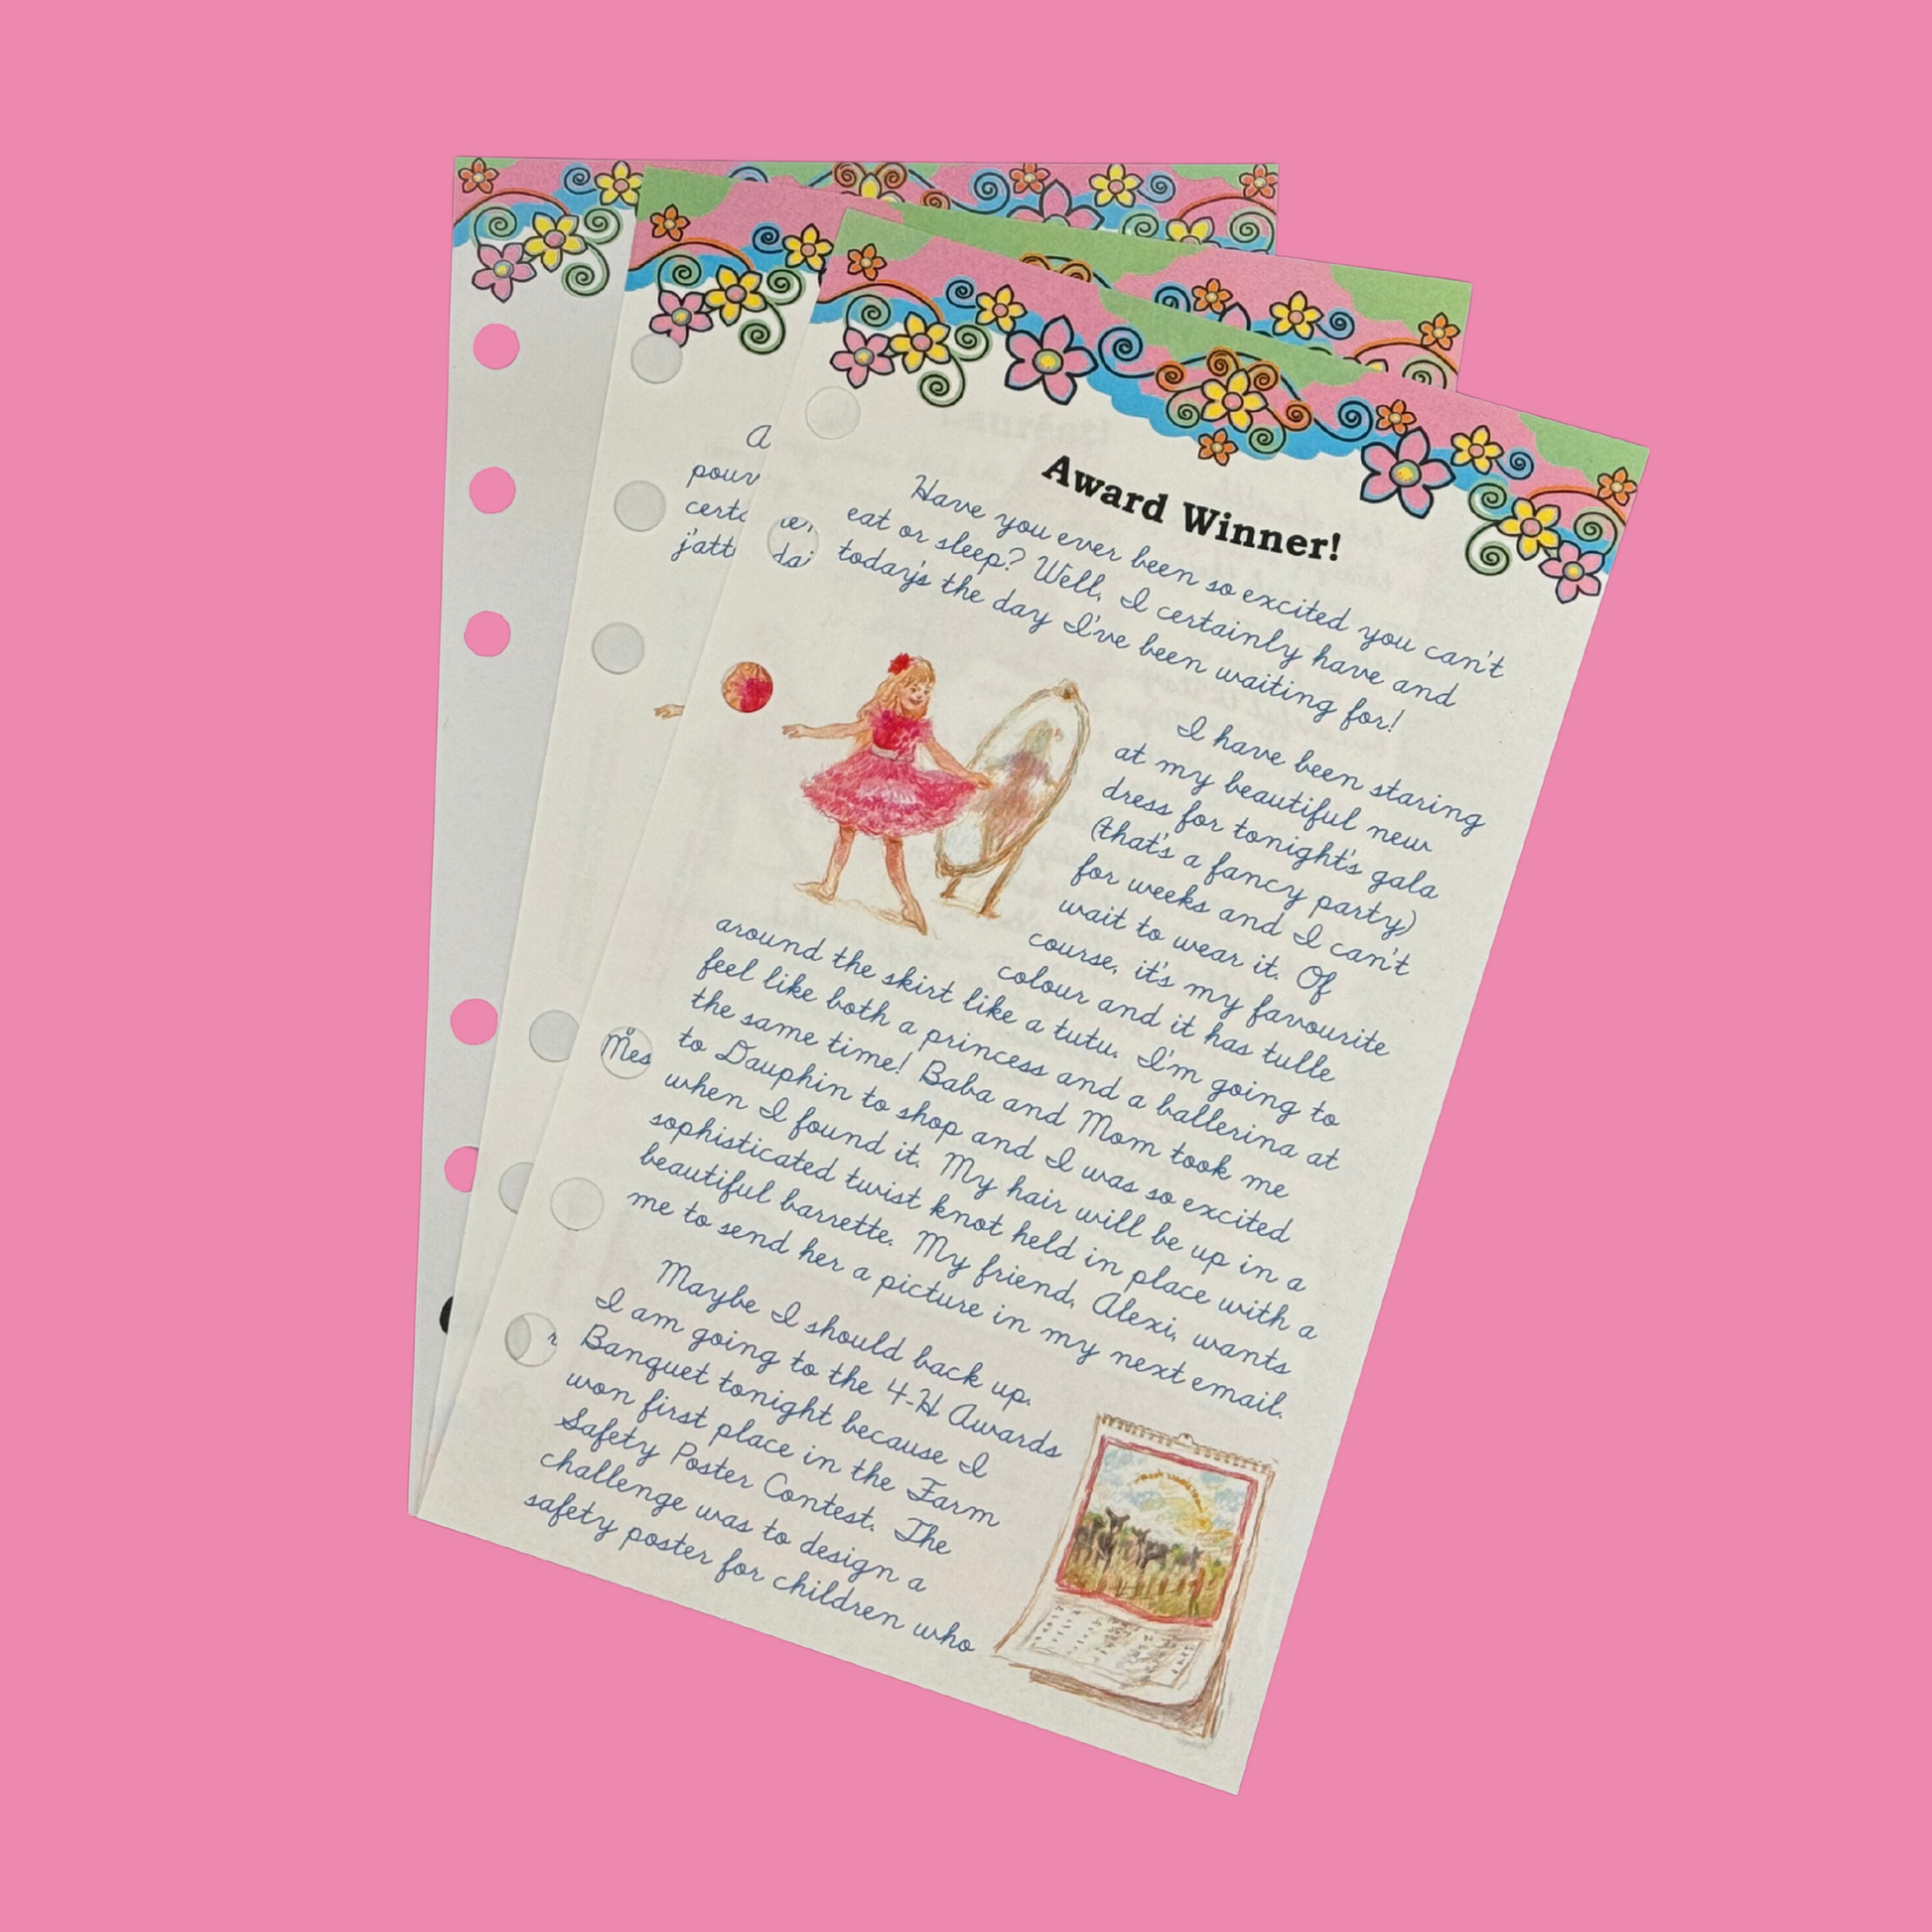 Award Winner!
Have you ever been so excited you can't
eat or sleep? Well, I certainly have and
today's the day I've been waiting for!
I have been staring
at my beautiful new
dress for tonight's gala
(that's a fancy party)
for weeks and I can't
wait to wear it. Of
course, it's my favourite
colour and it has tulle
around the skirt like a tutu. I'm going to
feel like both a princess and a ballerina at
the same time! Baba and Mom took me
to Dauphin to shop and I was so excited
when I found it. My hair will be up in a
sophisticated twist knot held in place with a
beautiful barrette. My friend, Alexi, wants
me to send her a picture in my next email.
Maybe I should back up.
I am going to the 4-H Awards
Banquet tonight because I
won first place in the Farm
Safety Poster Contest. The
challenge was to design a
safety poster for children who
A
pouv
j'att
Mes